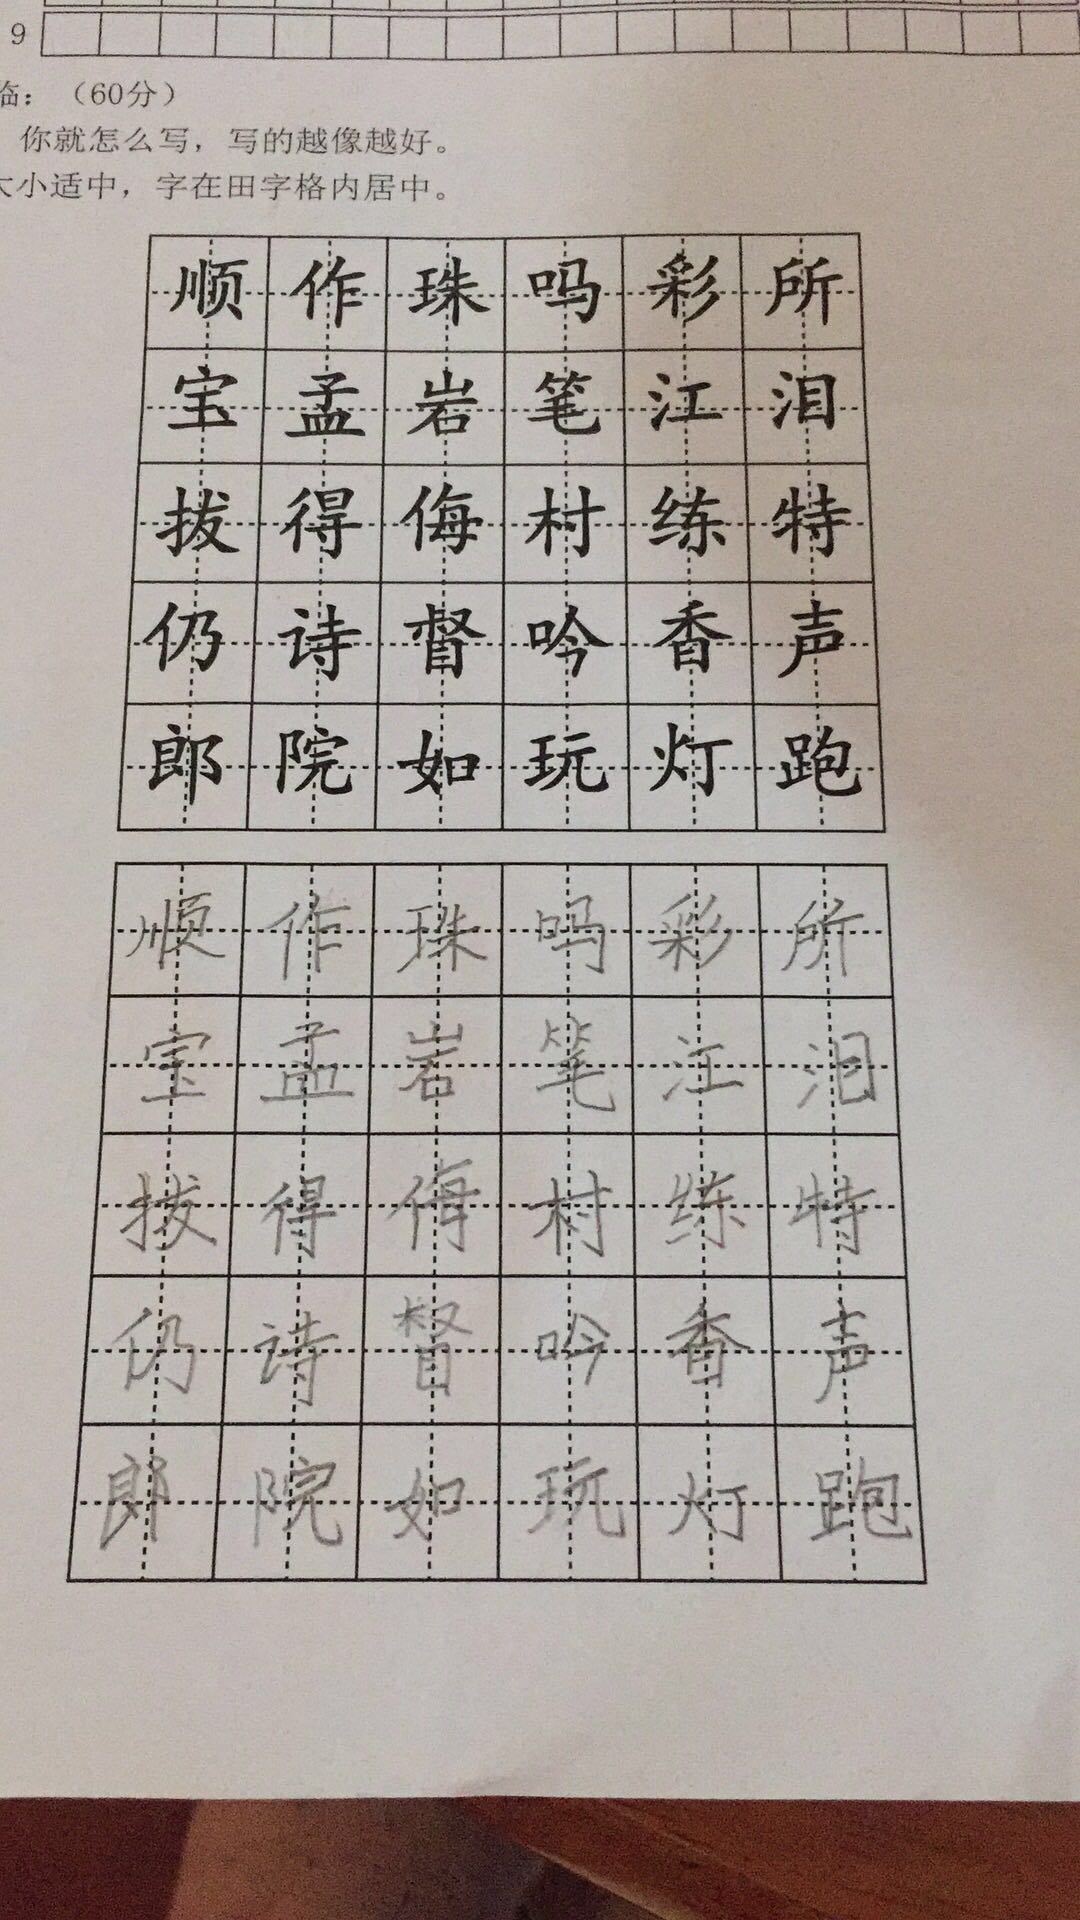 9
临：（60分）
你就怎么写，写的越像越好。
大小适中，字在田字格内居中。
顺作珠吗彩所
宝孟岩笔江泪
拔得侮村练特
仍诗督吟香声
郎院如玩灯跑
顺作珠吗彩所
宝孟岩笔江泪
拔得侮村练特
仍诗督吟香声
郎院如玩灯跑